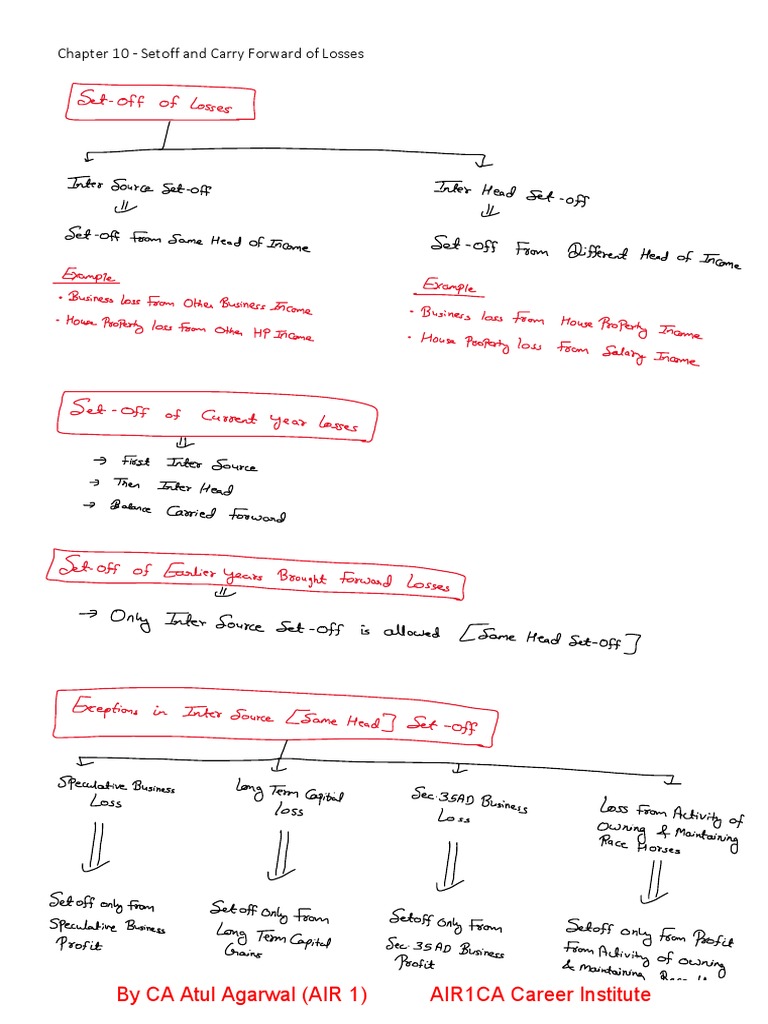 Chapter 10 - Setoff and Carry Forward of Losses
Set-off of Losses
Inter Source Set-off
Set-off From Same Head of Income
Example
• Business loss From Other Business Income
• House Property loss From Other HP Income
Inter Head Set-off
Set-off From Different Head of Income
Example
• Business loss From House Property Income
• House Property loss From Salary Income
Set-off of Current year Losses
→ First Inter Source
→ Then Inter Head
→ Balance Carried Forward
Set-off of Earlier years Brought forward Losses
→ Only Inter Source Set-off is allowed [Same Head Set-off]
Exceptions in Inter Source [Same Head] Set-off
Speculative Business
Loss
Setoff only from
Speculative Business
Profit
Long Term Capital
loss
Setoff Only From
Long Term Capital
Gains
Sec.35AD Business
Loss
Setoff Only From
Sec.35AD Business
Profit
Loss From Activity of
Owning & Maintaining
Race Horses
Setoff only From Profit
From Activity of owning
& Maintaining
By CA Atul Agarwal (AIR 1) AIR1CA Career Institute